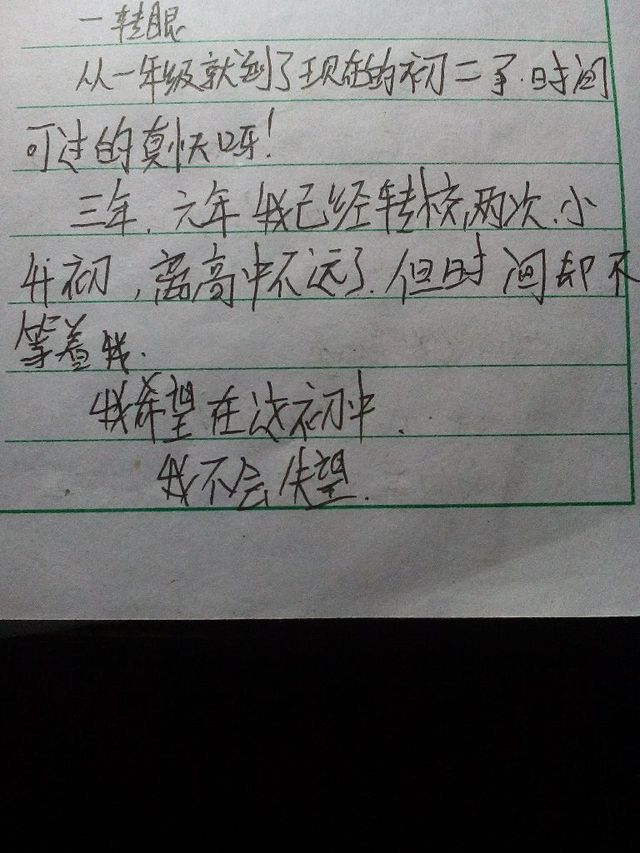 一转眼
从一年级就到了现在的初二了.时间
可过的真快呀!
三年.六年我已经转校,两次.小
升初,离高中不远了.但时间却不
等着我.
我希望在这初中.
我不会失望.